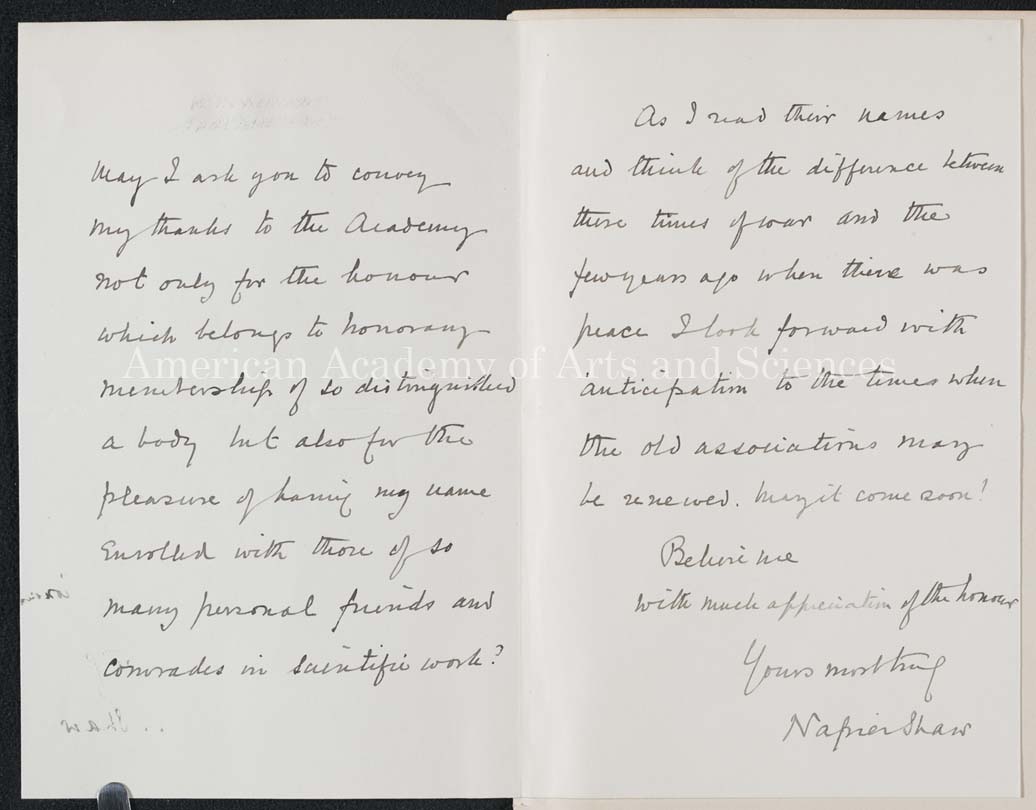 May I ask you to convey
my thanks to the Academy
not only for the honour
which belongs to honorary
membership of so distinguished
a body but also for the
pleasure of having my name
enrolled with those of so
many personal friends and
comrades in scientific work?
As I read their names
and think of the difference between
these times of war and the
few years ago when there was
peace I look forward with
anticipation to the times when
the old associations may
be renewed. May it come soon!
Believe me
with much appreciation of the honour
Yours most truly
Napier Shaw
American Academy of Arts and Sciences